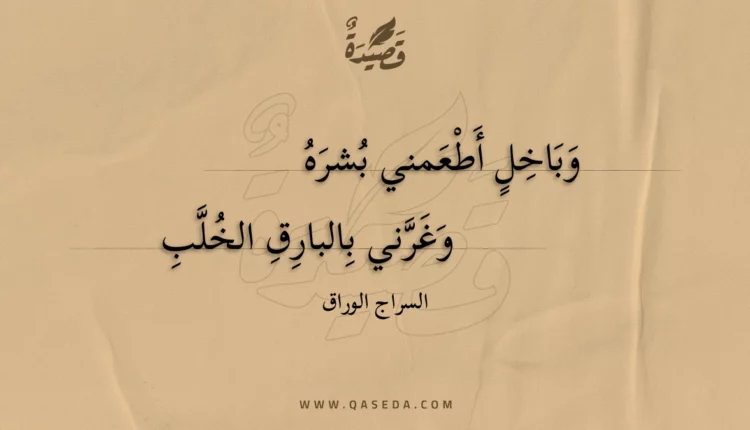 قَصِيْدَةٌ
وَبَاخِلٍ أَطْعَمني بُشرَهُ
وَغَرَّني بِالبارِقِ الخُلَّبِ
السراج الوراق
WWW.QASEDA.COM